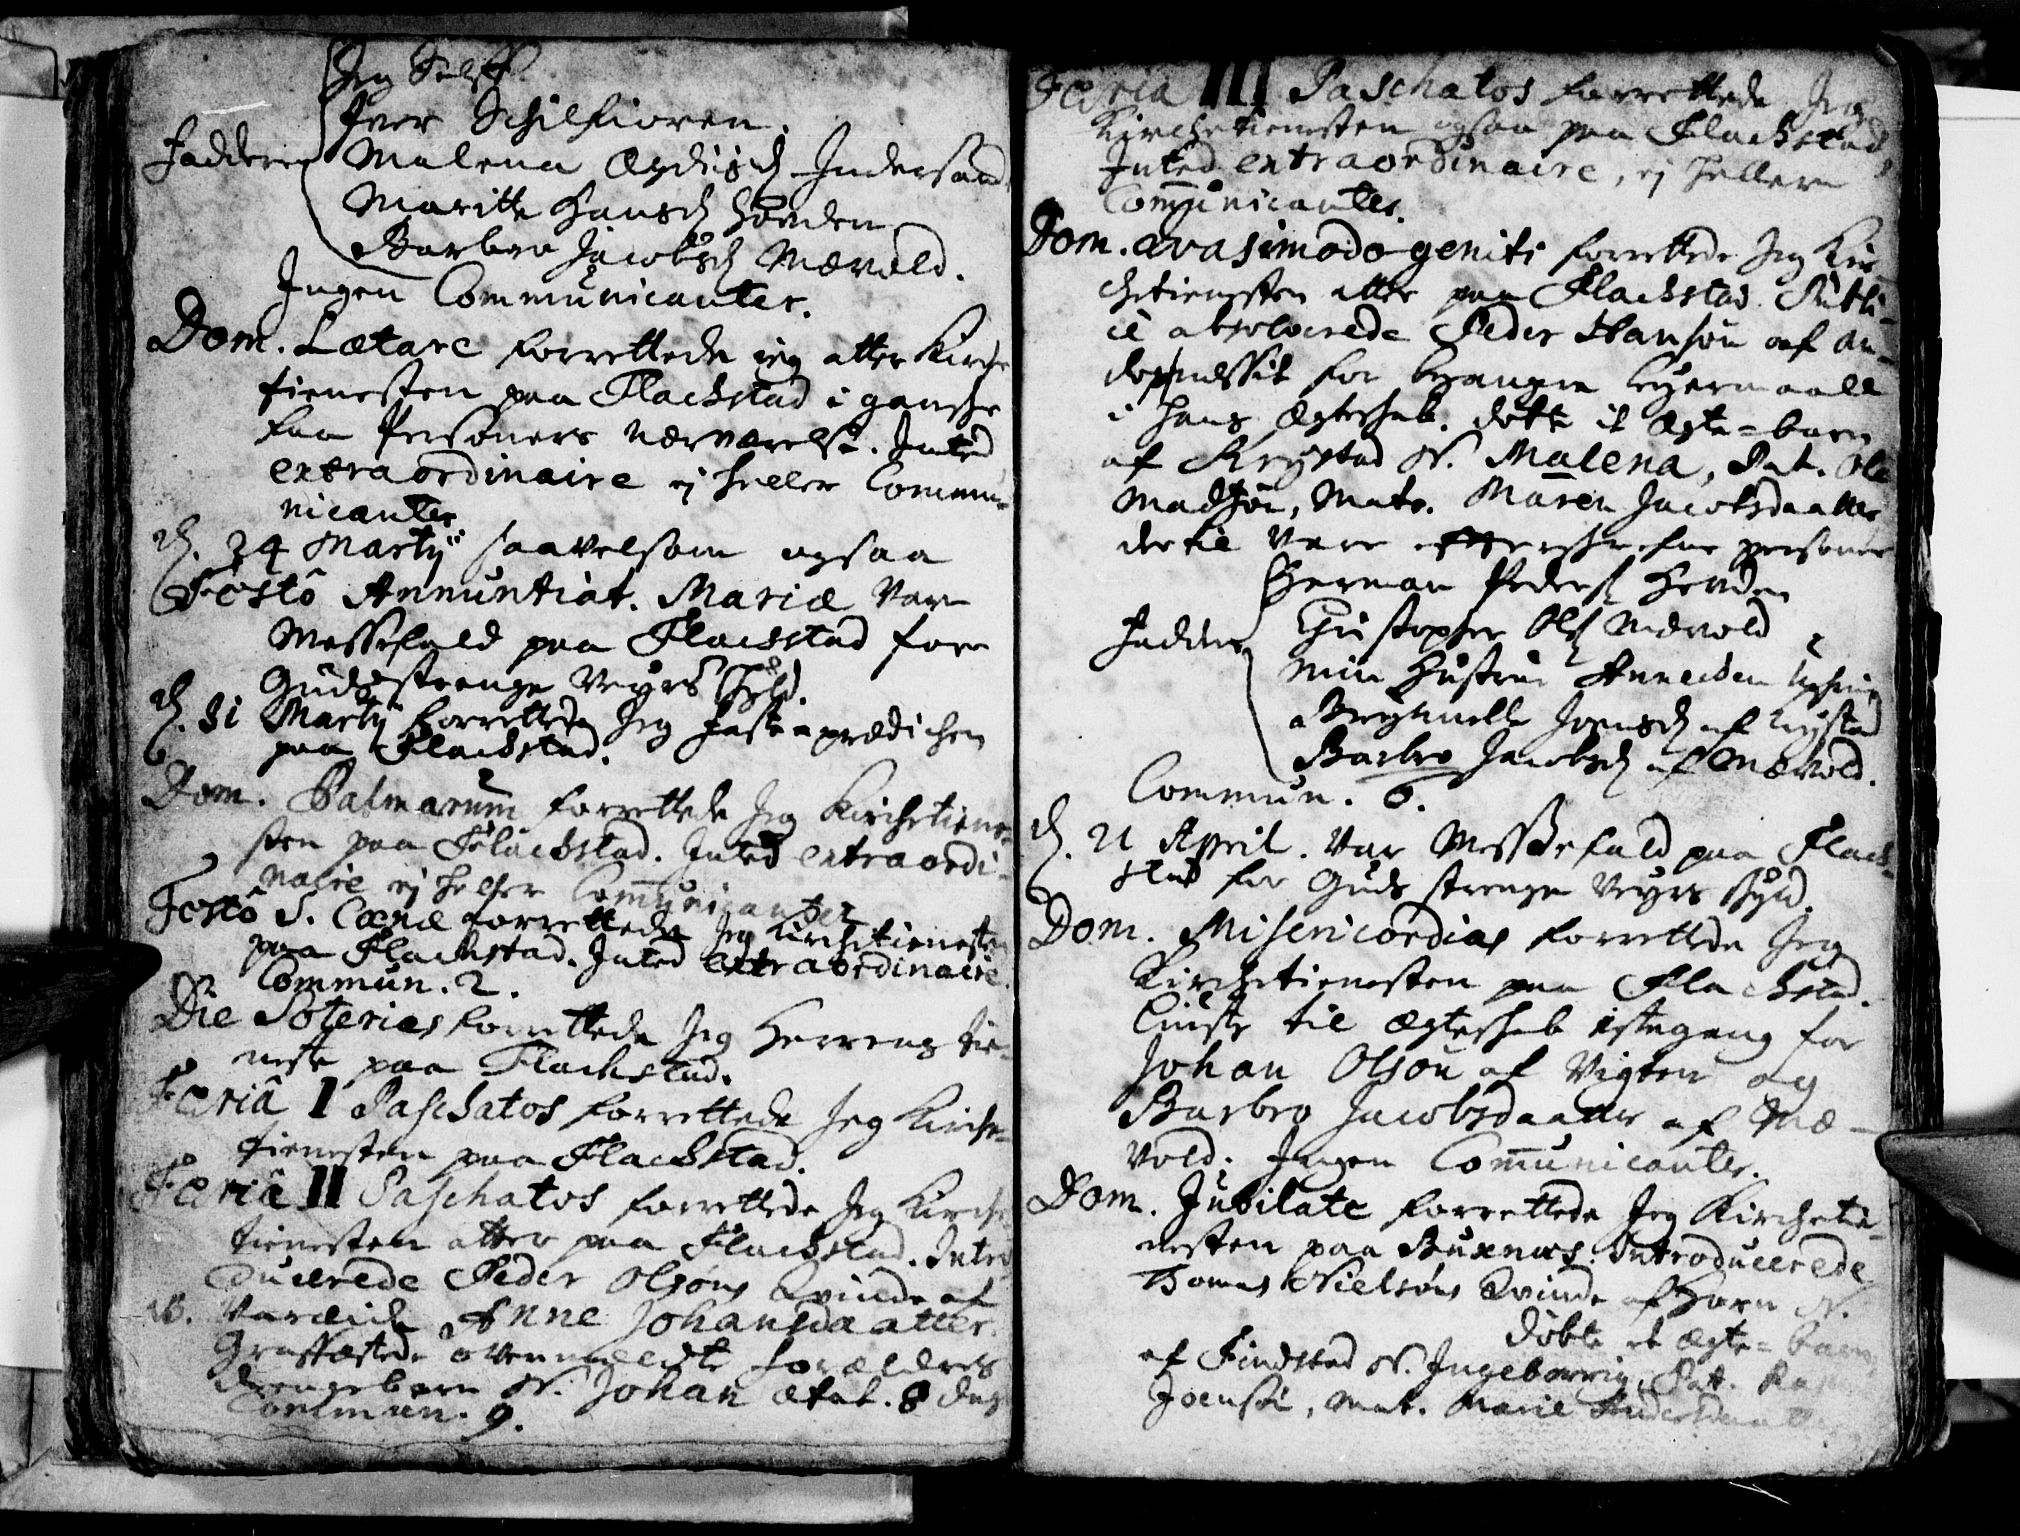 Jeg Selff
Iver Schilfioren.
Faddere Malena Ægdisd Indersand
Maritte Hansd Horden
Barbro Jacobsd Nævold.
Ingen Communicanter.
Dom. Lætare forrettede ieg atter Kirche
tienesten paa Flachstad i ganske
faa Personers nærværelse. Inted
extraordinaire ej heller Commu-
nicanter.
d. 24 Martij saavelsom ogsaa
Festo Annuntiat. Mariæ var
Messefald paa Flachstad for
Guds strenge Veyrs skyld.
d. 31 Martij forrettede Jeg Fasteprædichen
paa Flachstad.
Dom. Palmarum forrettede Jeg Kirchetiene-
sten paa Flachstad. Inted extraordi-
naire ej heller Communicanter
Festo S. Cænæ forrettede Jeg Kirchetienesten
paa Flachstad. Inted extraordinaire.
Commun. 2.
Die Soterias forrettede Jeg Herrens tie-
neste paa Flachstad.
Feriâ I Paschatos forrettede Jeg Kirche-
tienesten paa Flachstad.
Feriâ II Paschatos forrettede Jeg Kirche
tienesten atter paa Flachstad. Intro
ducerede Peder Olsöns Qvinde af
N. Vareide Anne Johansdaatter.
Græsfæstede ovenmeldte forældres
drengebarn N. Johan ætat. 8 dag
Commun. 9.
Feria III Paschatos forrettede Jeg
Kirchetienesten ogsaa paa Flachstad,
Inted extraordinaire, ej heller
Communicanter.
Dom. Qvasimodo geniti forrettede Jeg Kir-
chetienesten atter paa Flachstad. Publi-
ce absolverede Peder Hansøn af
for begangen leyermaall
i hans Ægteskab. døbte it Ægte-barn
af Krystad N. Malena, Pat. Ole
Madsøn, Mat. Maren Jacobsdaatter
dertil vare efterskrefne personer
Herman Peders. Horden
Faddere Christopher Ols. Nævold
min Hustrue Anne
Joensd af Krystad
Barbro Jacobsd af Nævold.
Commun. 6.
d. 21 April. var Messefald paa Flach-
stad for Guds strenge Veyrs skyld.
Dom. Misericordias forrettede Jeg
Kirchetienesten paa Flachstad.
Liuste til Ægteskab 1stegang for
Johan Olsøn af Vigten og
Barbro Jacobsdaatter af Næ-
vold. Ingen Communicanter.
Dom. Jubilate forrettede Jeg Kirchetie-
nesten paa Buxnæs. Introducerede
Thomas Nielsöns Qvinde af Horn N.
Døbte et Ægte-barn
af Findstad N. Ingeborrig, Pat.
Joensøn, Mat. Marie Andersdaatter